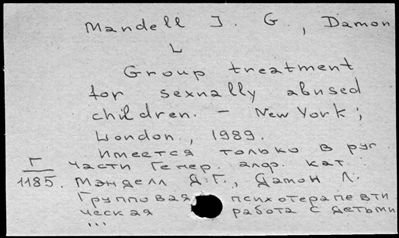 Mandell J. G., Damon
L
Group treatment
for sexually abused
children. - New York;
London, 1989.
Имеется только в рус.
Г части Генер. алф. кат.
1185. Манделл Д.Г., Дамон Л.
Групповая психотерапевти
ческая работа с детьми
...